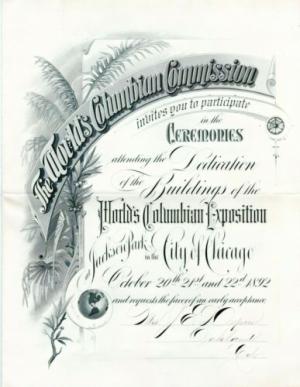 The World's Columbian Commission
invites you to participate
in the
Ceremonies
attending the Dedication
of the Buildings of the
World's Columbian Exposition
Jackson Park in the City of Chicago
October 20th 21st and 22nd 1892
and requests the favor of an early acceptance